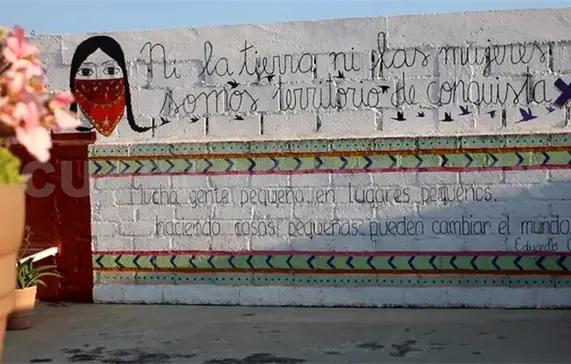 Ni la tierra ni las mujeres
somos territorio de conquista
Mucha gente pequeña, en lugares pequeños,
haciendo cosas pequeñas pueden cambiar el mundo.
Eduardo